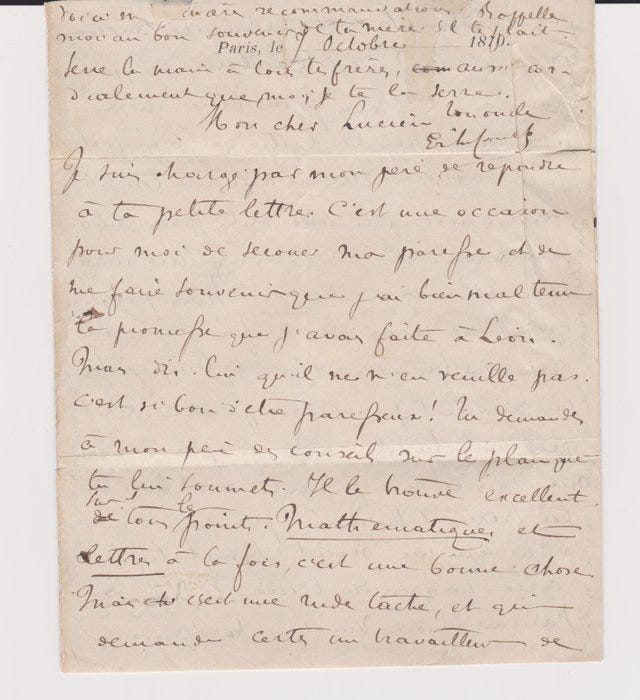 recommandations. Rappelle
moi au bon souvenir de ta mère s'il te plait.
Paris, le 7 Octobre 1870.
Serre la main à tous tes frères, aussi cor-
dialement que moi je te la serre.
Mon cher Lucien
Je suis chargé par mon père de répondre
à ta petite lettre. C'est une occasion
pour moi de secouer ma paresse, et de
me faire souvenir que j'ai bien mal tenu
la promesse que j'avais faite à Léon.
Mais dis-lui qu'il ne m'en veuille pas.
c'est si bon d'être paresseux! Tu demandes
à mon père des conseils sur le plan que
tu lui soumets. Il le trouve excellent
sur tous les points. Mathématiques et
lettres à la fois, c'est une bonne chose.
Mais c'est une rude tâche, et qui
demande certes un travailleur de